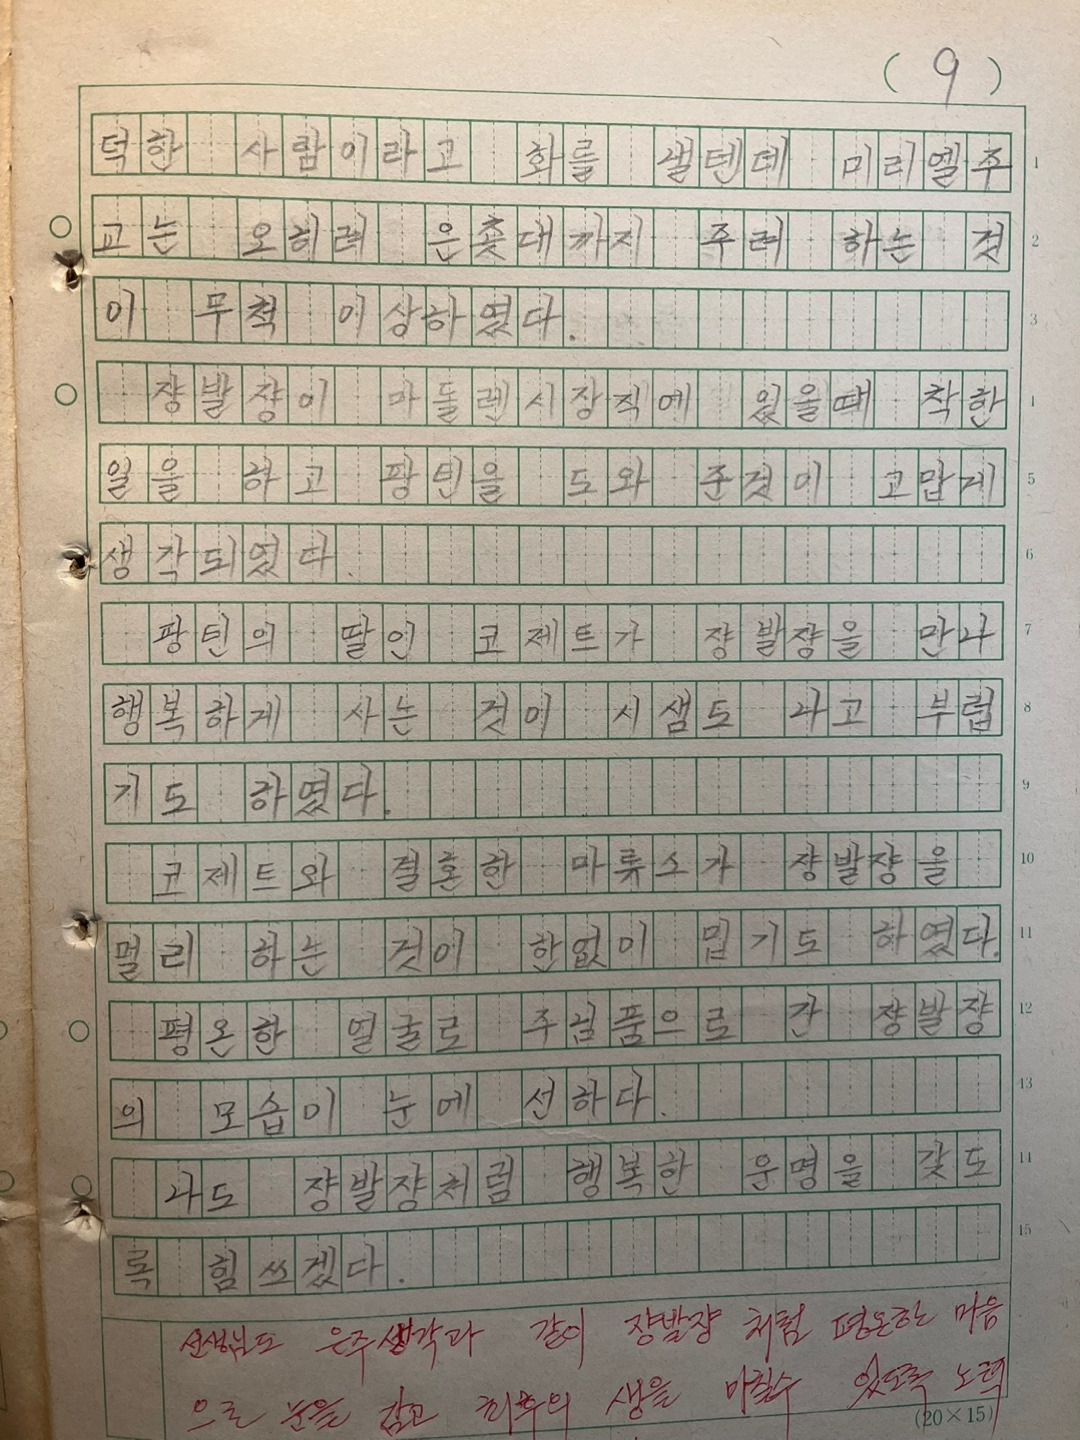 ( 9 )
덕한 사람이라고 화를 낼텐데 미리엘주 1
교는 오히려 은촛대까지 주려 하는 것 2
이 무척 이상하였다. 3
쟝발쟝이 마돌렌시장직에 있을때 착한 4
일을 하고 팡틴을 도와 준것이 고맙게 5
생각되였다. 6
팡틴의 딸인 코제트가 쟝발쟝을 만나 7
행복하게 사는 것이 시샘도 나고 부럽 8
기도 하였다. 9
코제트와 결혼한 마류스가 쟝발쟝을 10
멀리 하는 것이 한없이 밉기도 하였다. 11
평온한 얼굴로 주님품으로 간 쟝발쟝 12
의 모습이 눈에 선하다. 13
나도 쟝발쟝처럼 행복한 운명을 갖도 14
록 힘 쓰겠다. 15
선생님도 은주생각과 같이 쟝발쟝 처럼 평온한 마음
으로 눈을 감고 최후의 생을 마칠수 있도록 노력
(20×15)